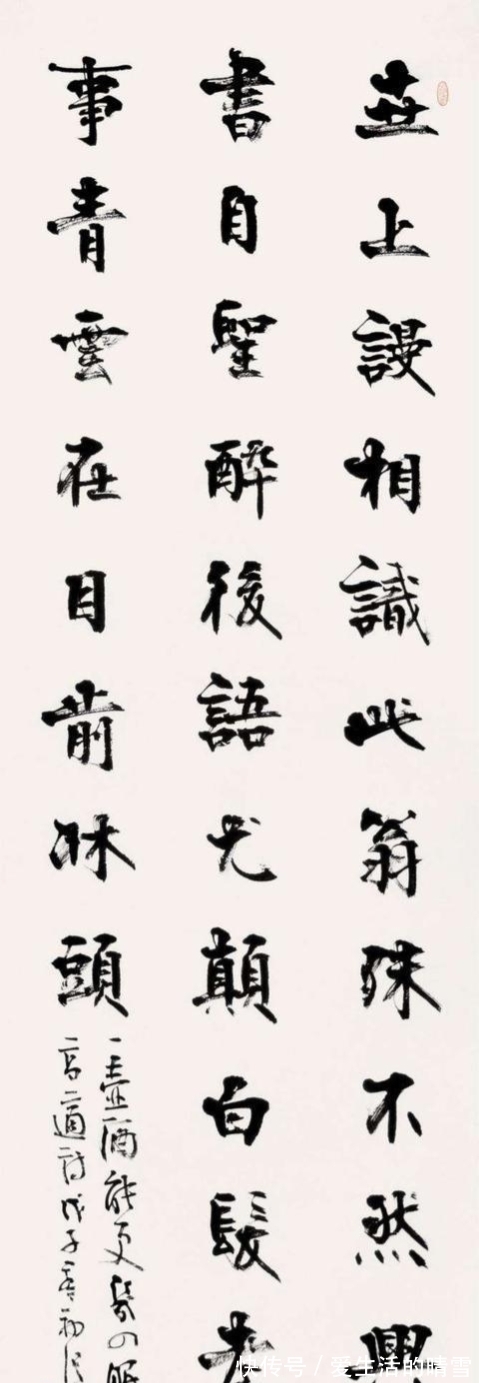 世上謾相識此翁殊不然興
書自聖醉後語尤顛白髮老
事青雲在目前牀頭
一壺酒能更幾回眠
高適詩戊子春初
快传号 / 爱生活的晴雪